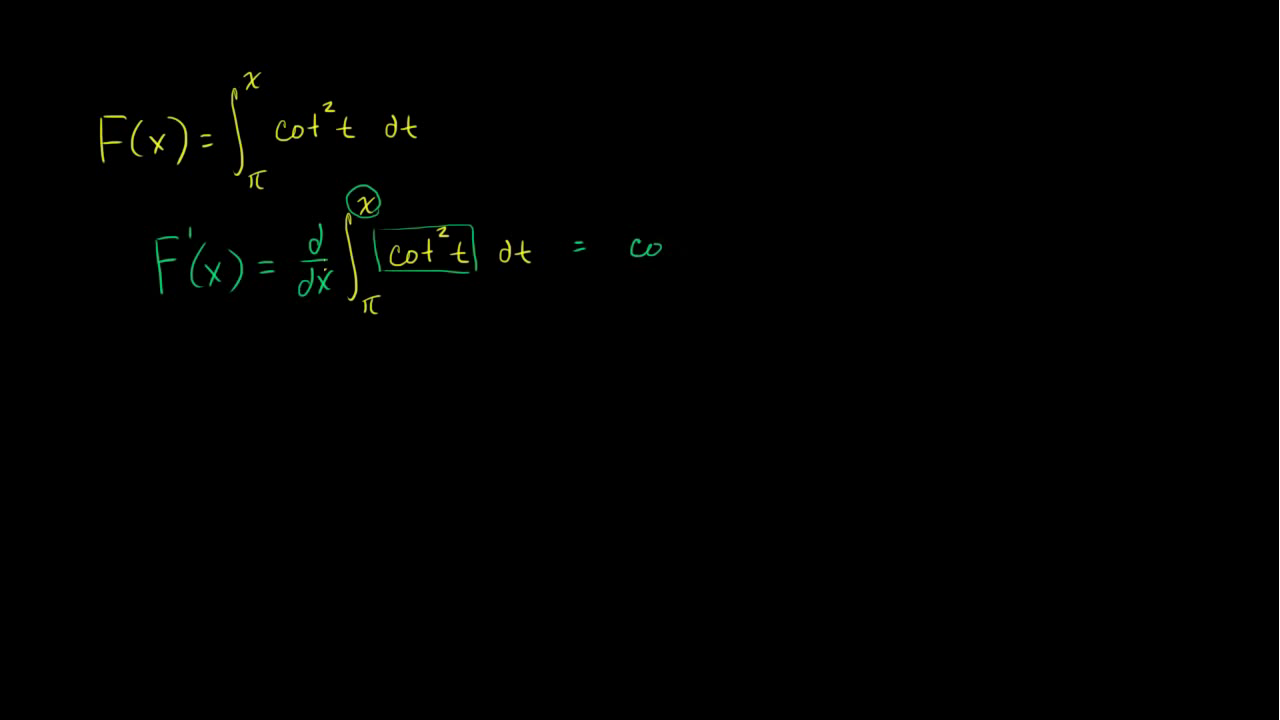 F(x) = ∫_π^x cot² t dt
F'(x) = d/dx ∫_π^x cot² t dt = co